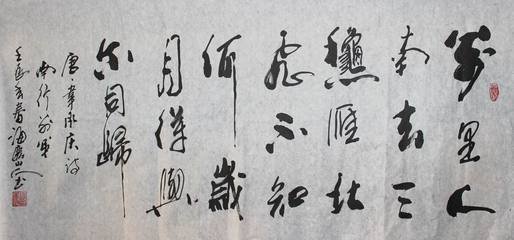 萬里人
南去三
穐雁北
飛不知
何歲
月得與
尔同歸
唐·韋承慶詩
南行别弟
壬辰春